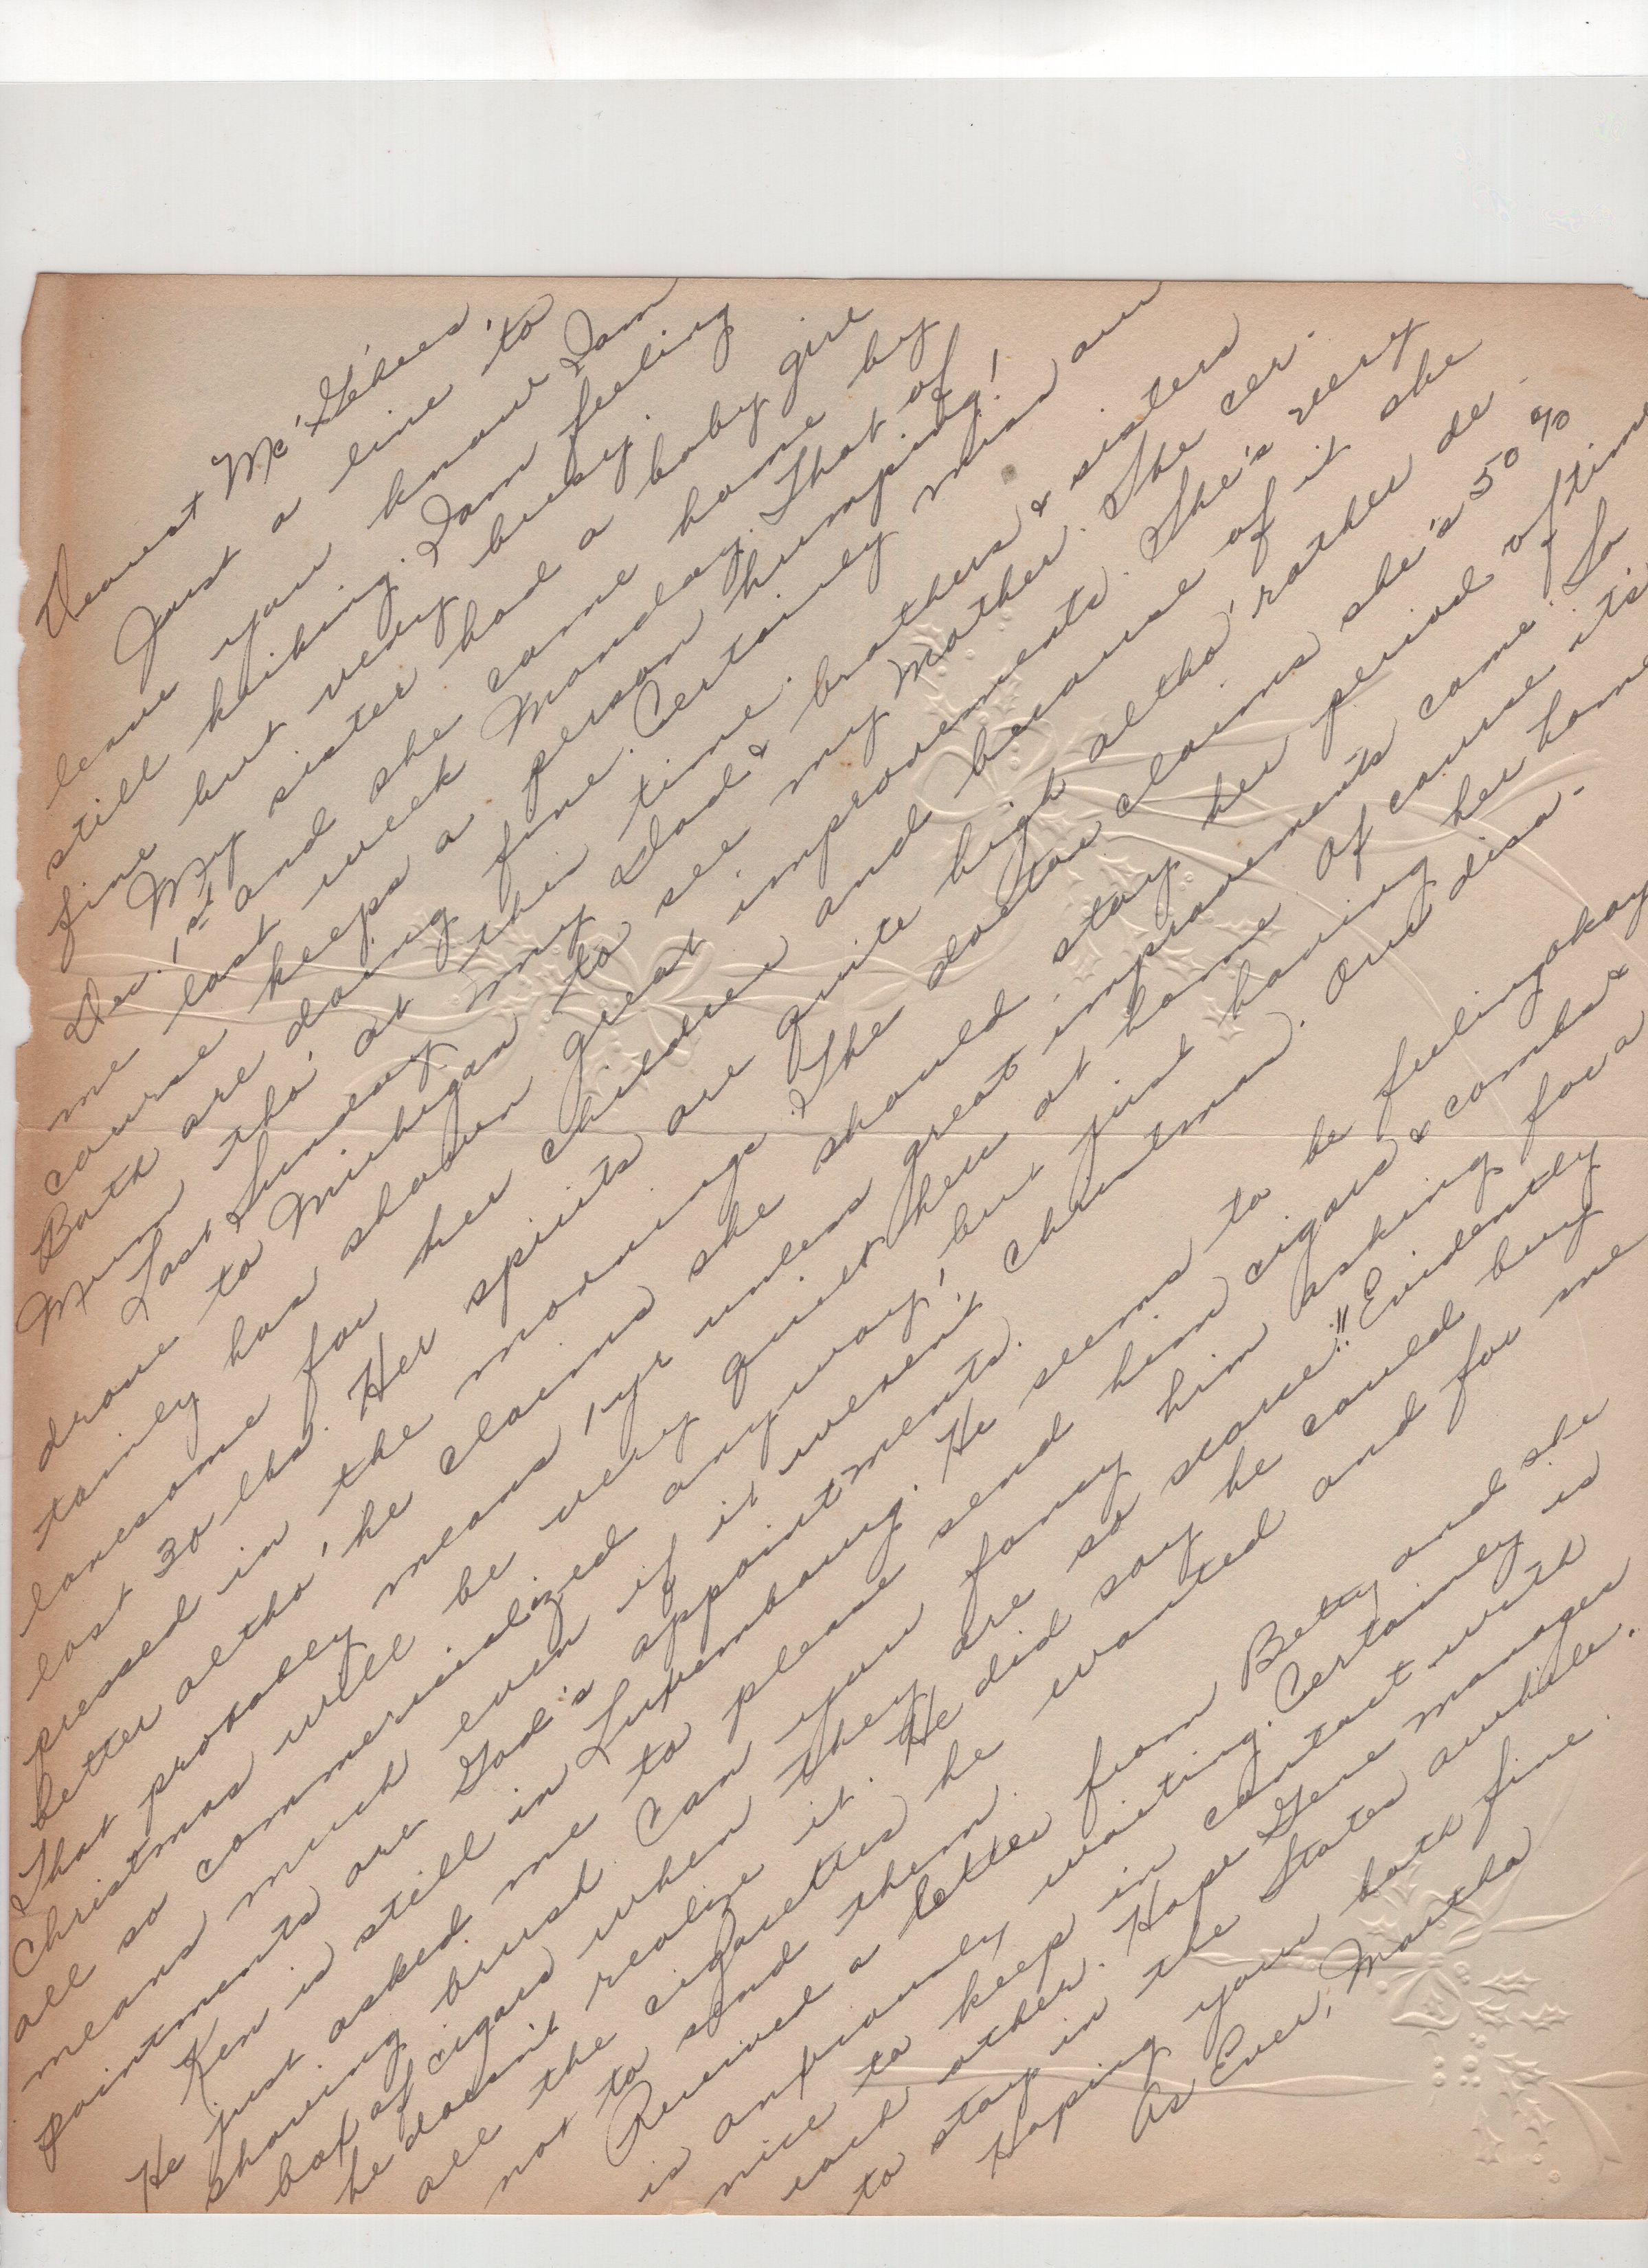 Dearest Mc'Gehees,
Just a line to
leave you know I am
still kicking. I am feeling
fine but very busy.
My sister had a baby girl
Dec. 1st and she came home by
me last week Monday. That of
course keeps a person humping!
Both are doing fine. Certainly miss our
Mum tho' at this time.
Last Sunday my Dad & brothers & sisters
drove to Michigan to see my Mother. She cer-
tainly has shown great improvements. She's very
lonesome for her children and because of it she
lost 30 lbs. Her spirits are quite high altho' rather de-
pressed in the mornings. The doctor claims she's 50%
better altho' he claims she should stay her period of time
That probably means 1 yr unless great improvements come. So
Christmas will be very quiet here at home. Of course its
all so commercialized anyway, but just having her home
means much even if it weren't Christmas. Our disa-
pointments are God's appointments.
Ken is still in Luxembourg. He seems to be feeling okay
He just asked me to please send him cigars & combs &
shaving brush. Can you fancy him asking for a
box of cigars when they are so scarce!! Evidently
he doesn't realize it. He did say he could buy
all the cigarettes he wanted and for me
not to send them.
Received a letter from Betty and she
is anxiously waiting. Certainly is
nice to keep in contact with
each other. Hope Gene manages
to stay in the States awhile.
Hoping you both fine.
As Ever, Martha